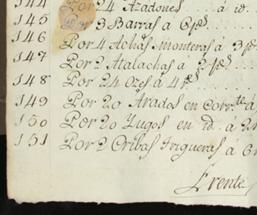 144 Por 24 Azadones . . . . á id.
145 9 Barras á 6 ps.
146 Por 4 Achas monteras á 3 ps
147 Por 2 Atalachas á 2 ps
148 Por 24 Ozes á 4 ps
149 Por 20 Arados en corrte. á
150 Por 20 Yugos en id. á 2
151 Por 2 Cribas Trigueras á 6
Frente